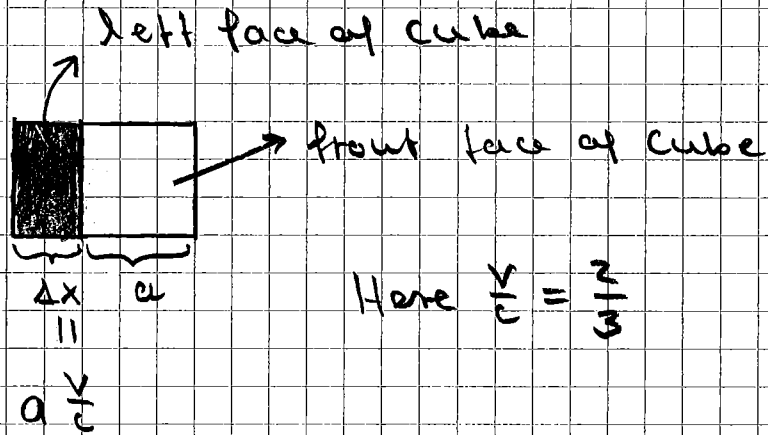 left face of cube
front face of cube
Δx a
Here v/c = 2/3
||
a v/c